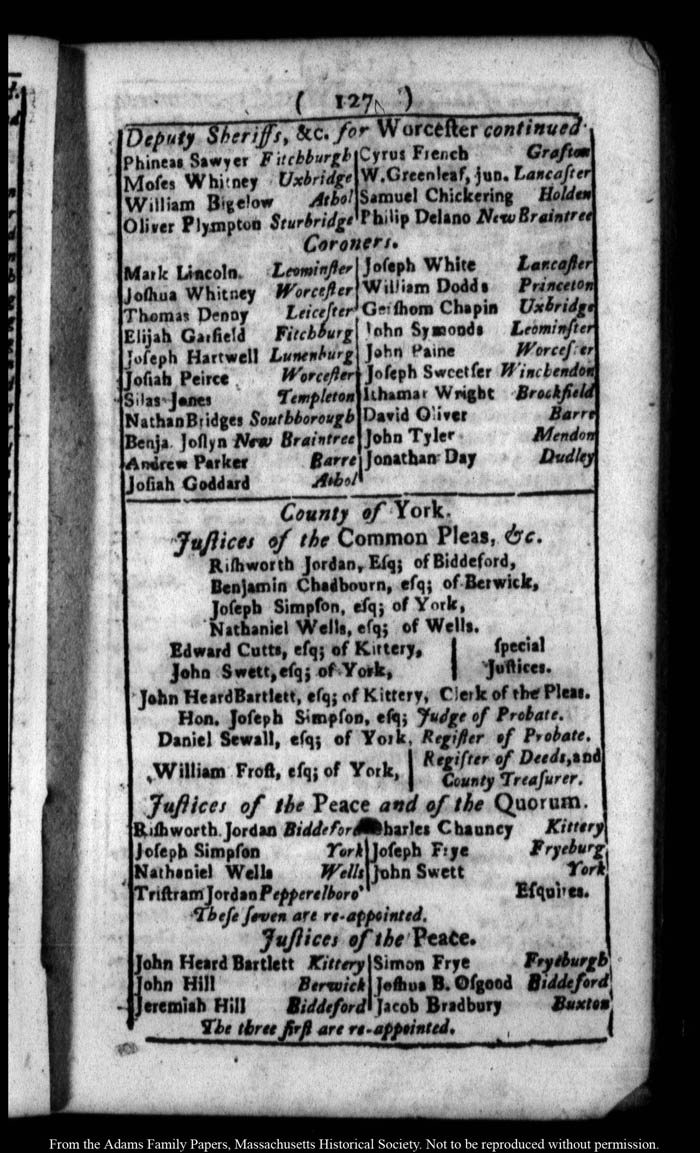 ( 127 )
Deputy Sheriffs, &c. for Worcester continued.
Phineas Sawyer Fitchburgh | Cyrus French Grafton
Moses Whitney Uxbridge | W. Greenleaf, jun. Lancaster
William Bigelow Athol | Samuel Chickering Holden
Oliver Plympton Sturbridge | Philip Delano New Braintree
Coroners.
Mark Lincoln. Leominster | Joseph White Lancaster
Joshua Whitney Worcester | William Dodds Princeton
Thomas Denny Leicester | Gershom Chapin Uxbridge
Elijah Garfield Fitchburg | John Symonds Leominster
Joseph Hartwell Lunenburg | John Paine Worcester
Josiah Peirce Worcester | Joseph Sweetser Winchendon
Silas Janes Templeton | Ithamar Wright Brookfield
Nathan Bridges Southborough | David Oliver Barre
Benja. Joslyn New Braintree | John Tyler Mendon
Andrew Parker Barre | Jonathan Day Dudley
Josiah Goddard Athol
County of York.
Justices of the Common Pleas, &c.
Rishworth Jordan, Esq; of Biddeford,
Benjamin Chadbourn, esq; of Berwick,
Joseph Simpson, esq; of York,
Nathaniel Wells, esq; of Wells.
Edward Cutts, esq; of Kittery, | special
John Swett, esq; of York, | Justices.
John Heard Bartlett, esq; of Kittery, Clerk of the Pleas.
Hon. Joseph Simpson, esq; Judge of Probate.
Daniel Sewall, esq; of York, Register of Probate.
William Frost, esq; of York, | Register of Deeds, and
County Treasurer.
Justices of the Peace and of the Quorum.
Rishworth Jordan Biddeford | Charles Chauncy Kittery
Joseph Simpson York | Joseph Frye Fryeburg
Nathaniel Wells Wells | John Swett York
Tristram Jordan Pepperelboro' Esquires.
These seven are re-appointed.
Justices of the Peace.
John Heard Bartlett Kittery | Simon Frye Fryeburgh
John Hill Berwick | Joshua B. Osgood Biddeford
Jeremiah Hill Biddeford | Jacob Bradbury Buxton
The three first are re-appointed.
From the Adams Family Papers, Massachusetts Historical Society. Not to be reproduced without permission.